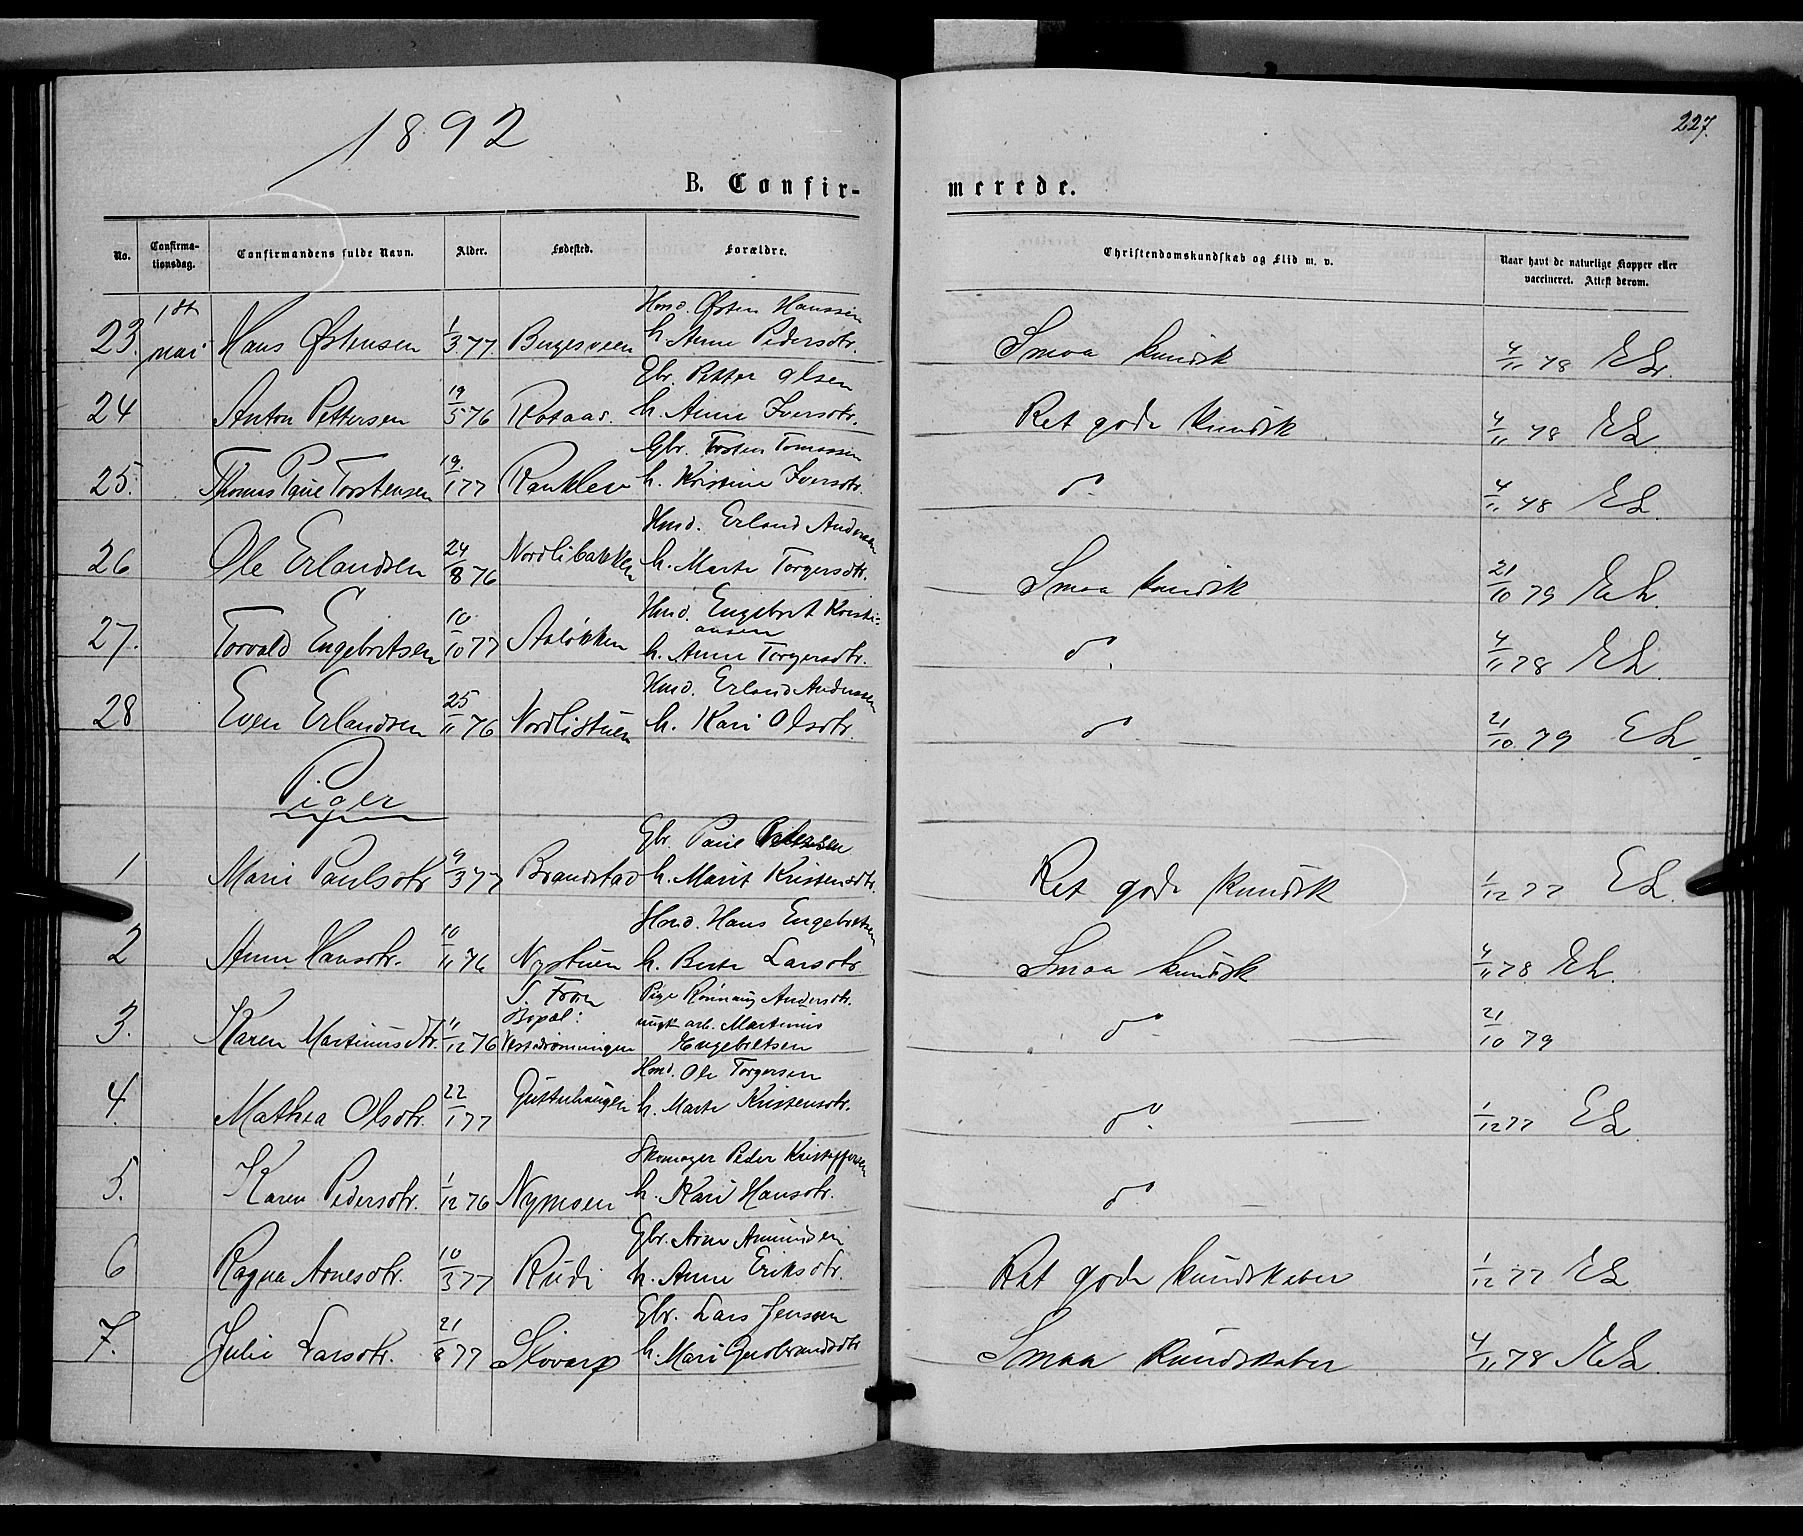 1892
227.
B. Confir-
merede.
No.
Confirma-
tionsdag.
Confirmandens fulde Navn.
Alder.
Fødested.
Forældre.
Christendomskundskab og Flid m. v.
Naar havt de naturlige Kopper eller
vaccineret. Attest derom.
23. 1ste mai Hans Østensen 1/3 77. Bugesveen
Hmd. Østen Hanssen
h. Anne Pedersdtr.
Smaa kundsk 4/11 78 EL.
24 Anton Pettersen 19/5 76 Rotaas.
Gbr. Petter Olsen
h. Anne Iversdtr.
Ret gode kundsk 4/11 78 EL.
25. Thomas Paul Torstensen 19/1 77 Ranklev
Gbr. Torsten Tomassen
h. Kristine Iversdtr.
do. 4/11 78 EL.
26 Ole Erlandsen 24/8 76 Nordlibakken
Hmd. Erland Andersen
h. Marte Torgersdtr.
Smaa kundsk 21/10 79 EL.
27. Torvald Engebretsen 10/10 77 Aaløkken
Hmd. Engebret Kristi-
ansen
h. Anne Torgersdtr.
do. 4/11 78 EL.
28 Even Erlandsen 25/11 76 Nordlistuen
Hmd. Erland Andersen
h. Kari Olsdtr.
do — 21/10 79 EL.
Piger
1 Marie Paulsdtr 9/3 77 Brandstad
Gbr. Paul
h. Marit Kristensdtr.
Ret gode kundsk 1/12 77 EL.
2 Anne Hansdtr. 10/11 76 Nystuen
Hmd. Hans Engebretsen
h. Berte Larsdtr
Smaa kundsk 4/11 78 EL.
3. Karen Martinusdtr. 11/12 76
S. Fron
Bopæl:
Pige Rønnaug Andersdtr.
ungk. arb. Martinus
Engebretsen
do — 21/10 79
4. Mathea Olsdtr. 22/1 77
Hmd. Ole Torgersen
h. Marte Kristensdtr.
do. — 1/12 77 EL.
5. Karen Pedersdtr. 1/12 76 Nymoen
Skomager Peder Kristoffersen
h. Kari Hansdtr.
do. —
6 Ragna Arnesdtr. 10/3 77 Rudi
Gbr. Arne Amundsen
h. Anne Eriksdtr.
Ret gode kundskaber 1/12 77 EL
7. Julie Larsdtr. 21/8 77 Slovarp
Gbr. Lars Jenssen
h. Mari Gudbrandsdtr
Smaa kundskaber 4/11 78 EL.